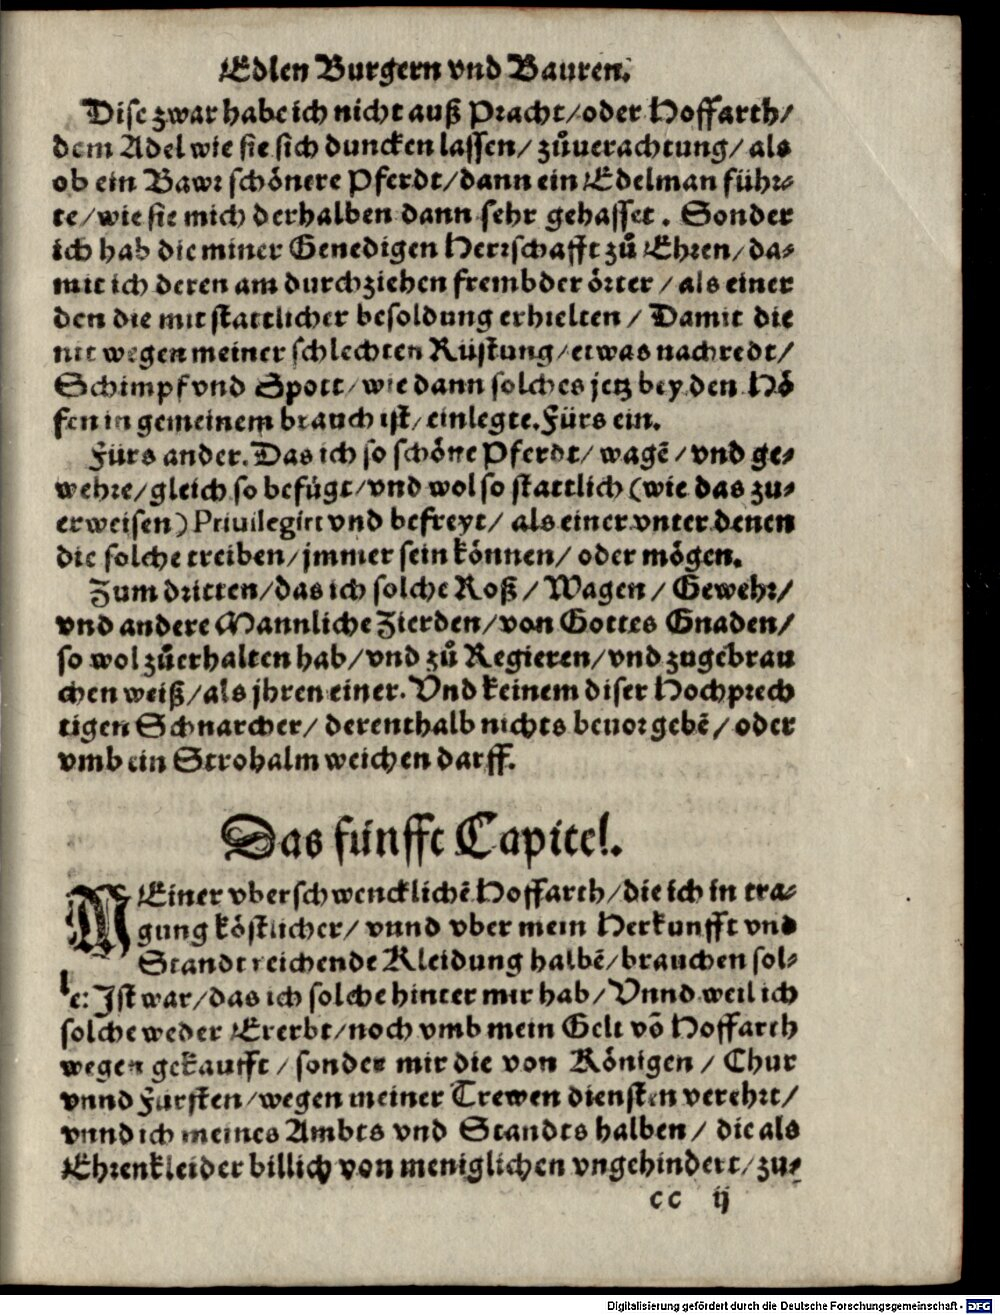 Edlen Burgern vnd Bauren.
Dise zwar habe ich nicht auß Pracht/oder Hoffarth/
dem Adel wie sie sich duncken lassen/ zůuerachtung/ als
ob ein Bawr schönere Pferdt/dann ein Edelman führ⸗
te/wie sie mich derhalben dann sehr gehasset. Sonder
ich hab die miner Genedigen Herrschafft zů Ehren/da⸗
mit ich deren am durchziehen frembder örter/als einer
den die mit stattlicher besoldung erhielten/ Damit die
nit wegen meiner schlechten Rüstung/etwas nachredt/
Schimpf vnd Spott/wie dann solches jetz bey den Hö
fen in gemeinem brauch ist/einlegte. Fürs ein.
Fürs ander. Das ich so schöne Pferdt/wagē/vnd ge⸗
wehre/gleich so befügt/vnd wol so stattlich (wie das zu⸗
erweisen) Priuilegirt vnd befreyt/ als einer vnter denen
die solche treiben/jmmer sein können/ oder mögen.
Zum dritten/das ich solche Roß/ Wagen/ Gewehr/
vnd andere Mannliche Zierden/von Gottes Gnaden/
so wol zůerhalten hab/vnd zů Regieren/vnd zugebrau
chen weiß/als jhren einer. Vnd keinem diser Hochprech
tigen Schnarcher/ derenthalb nichts beuor gebē/ oder
vmb ein Strohalm weichen darff.
Das fünfft Capitel.
MEiner vberschwencklichē Hoffarth/die ich in tra⸗
gung köstlicher/ vnnd vber mein Herkunfft vnd
Standt reichende Kleidung halbē/brauchen sol⸗
le: Ist war/das ich solche hinter mir hab/Vnnd weil ich
solche weder Ererbt/noch vmb mein Gelt vō Hoffarth
wegen gekaufft/sonder mir die von Königen/ Chur
vnnd Fürsten/wegen meiner Trewen diensten verehrt/
vnnd ich meines Ambts vnd Standts halben/ die als
Ehrenkleider billich von meniglichen vngehindert/zu⸗
cc ij
Digitalisierung gefördert durch die Deutsche Forschungsgemeinschaft - DFG